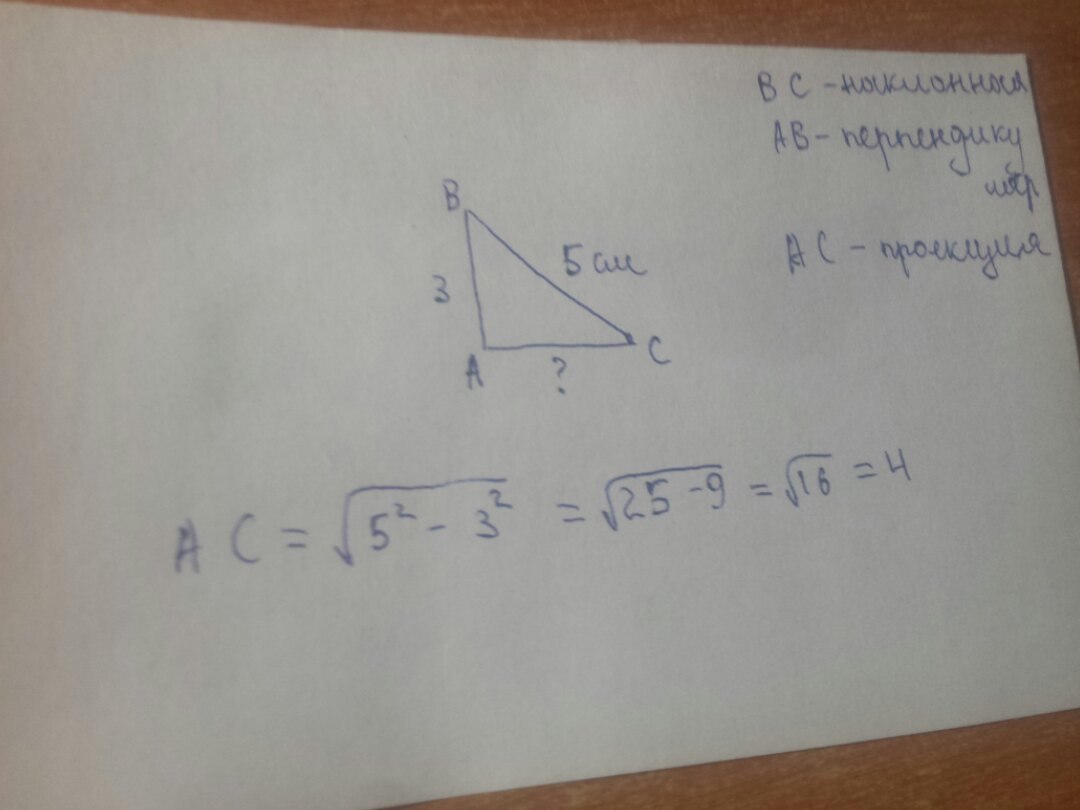 BC - наклонная
AB - перпендику
ляр
AC - проекция
B
5 см
3
A
?
C
AC = √5² - 3² = √25 - 9 = √16 = 4